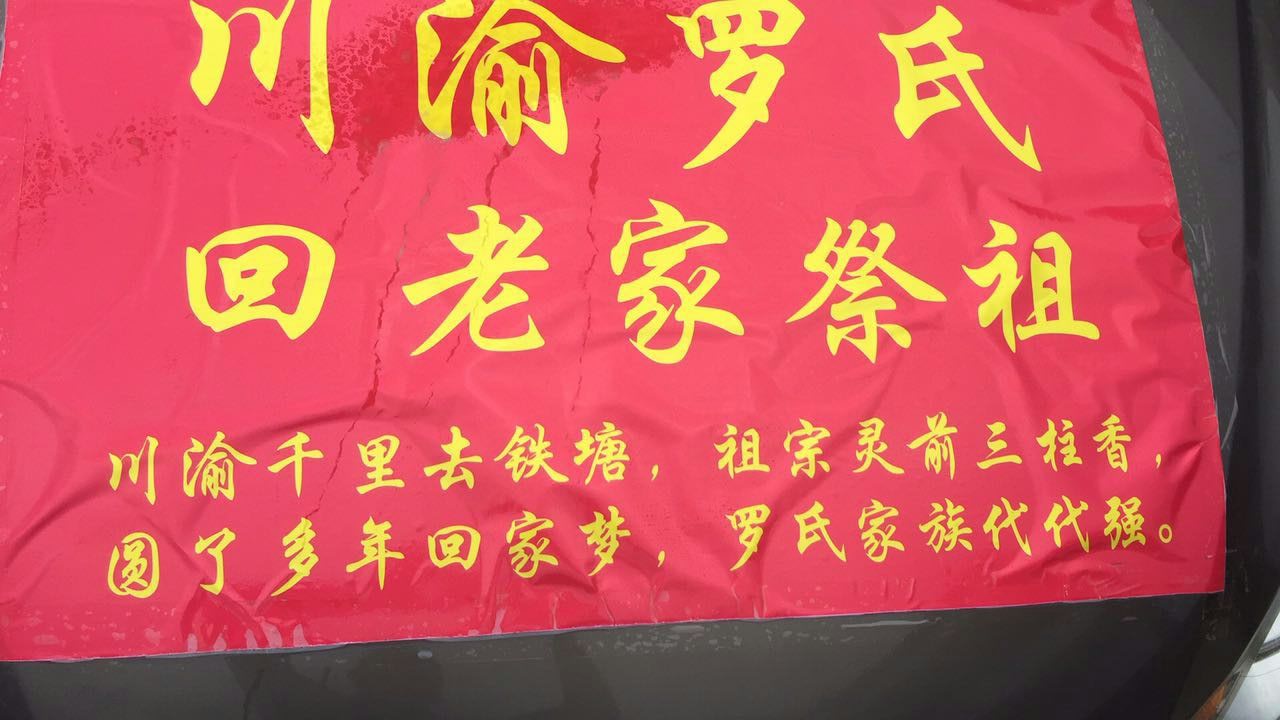 川渝罗氏
回老家祭祖
川渝千里去铁塘，祖宗灵前三柱香，
圆了多年回家梦，罗氏家族代代强。